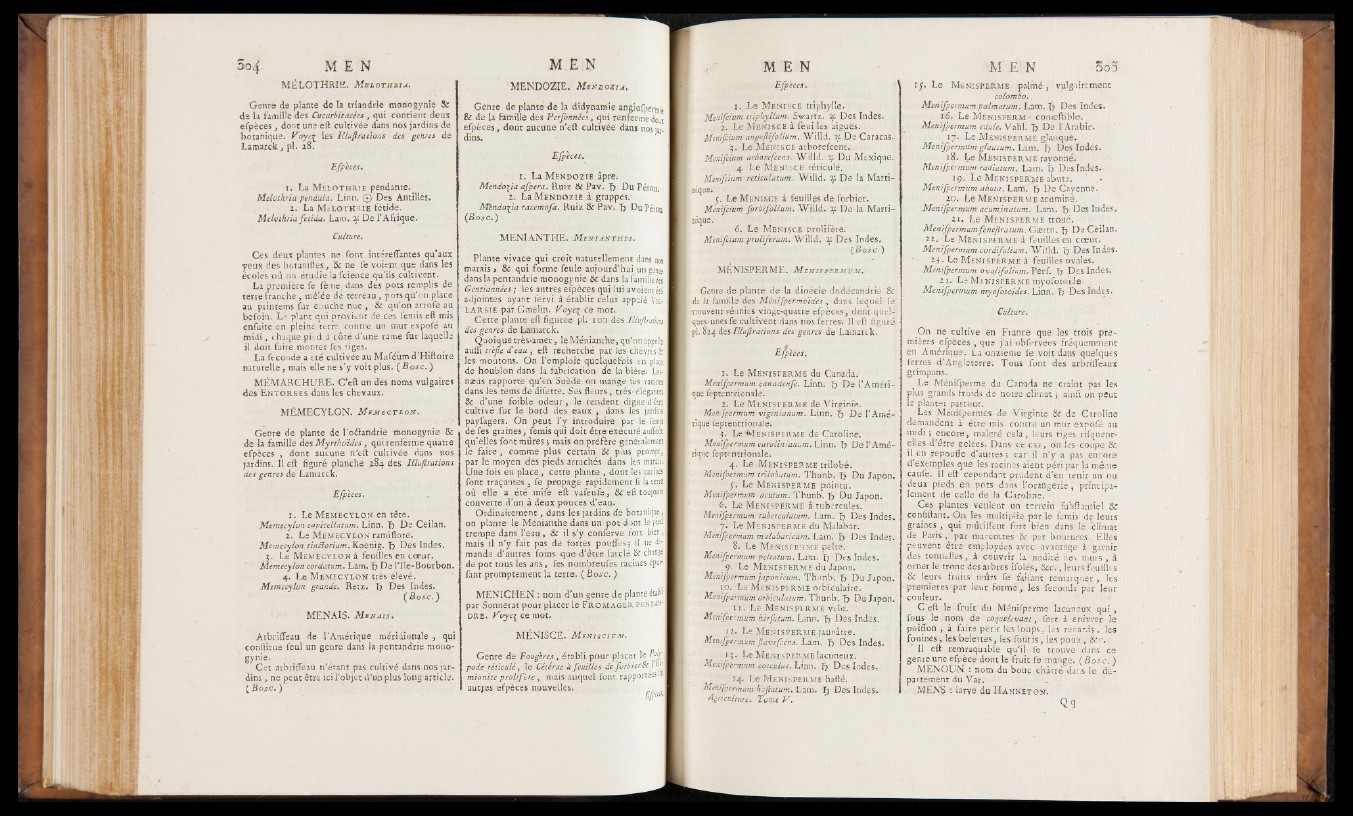 304 MEN
MÉLOTHRIE. MELOTHRIA.
Genre de plante de la triandrie monogynie &
de la famille des Cucurbitacées, qui contient deux
eſpèces, dont une eſt cultivée dans nos jardins de
botanique. Voyez les Illuſtrations des genres de
Lamarck, pl. 28.
Eſpèces.
1. La MÉLOTHRIE pendante.
Melothria pendula. Linn. ☉ Des Antilles.
2. La MELOTHRIE fétide.
Melothria fetida. Lam. ♃ De l'Afrique.
Culture.
Ces deux plantes ne ſont intéreſſantes qu'aux
yeux des botaniſtes, & ne ſe voient que dans les
écoles où on étudie la ſcience qu'ils cultivent.
La première ſe ſème dans des pots remplis de
terre franche, mêlée de terreau, pots qu'on place
au printems ſur couche nue, & qu'on arroſe au
beſoin. Le plant qui provient de ces ſemis eſt mis
enſuite en pleine terre contre un mur expoſé au
midi, chaque pied à côté d'une rame ſur laquelle
il doit faire monter ſes tiges.
La ſeconde a été cultivée au Muſéum d'Hiſtoire
naturelle, mais elle ne s'y voit plus. (Bosc.)
MÉMARCHURE. C'eſt un des noms vulgaires
des ENTORSES dans les chevaux.
MÉMECYLON. MEMECYLON.
Genre de plante de l'octandrie monogynie &
de la famille des Myrthoïdes, qui renferme quatre
eſpèces, dont aucune n'eſt cultivée dans nos
jardins. Il eſt figuré planche 284 des Illuſtrations
des genres de Lamarck.
Eſpèces.
1. Le MEMECYLON en tête.
Memecylon capitellatum. Linn. ♄ De Ceilan.
2. Le MEMECYLON ramiflore.
Memecylon tinctorium. Koenig. ♄ Des Indes.
3. Le MEMECYLON à feuilles en cœur.
Memecylon cordatum. Lam. ♄ De l'Ile-Bourbon.
4. Le MEMECYLON très élevé.
Memecylon grande. Retz. ♄ Des Indes.
(Bosc.)
MENAIS. MENAIS.
Arbriſſeau de l'Amérique méridionale, qui
conſtitue ſeul un genre dans la pentandrie mono-
gynie.
Cet arbriſſeau n'étant pas cultivé dans nos jar-
dins, ne peut être ici l'objet d'un plus long article.
(Bosc.)
MEN
MENDOZIE. MENDOZIA.
Genre de plante de la didynamie angioſpermie
& de la famille des Perſonnées, qui renferme deux
eſpèces, dont aucune n'eſt cultivée dans nos jar-
dins.
Eſpèces.
1. La MENDOZIE âpre.
Mendozia aſpera. Ruiz & Pav. ♄ Du Pérou.
2. La MENDOZIE à grappes.
Mendozia racemoſa. Ruiz & Pav. ♄ Du Pérou.
(Bosc.)
MENIANTHE. MENIANTHES.
Plante vivace qui croît naturellement dans nos
marais, & qui forme ſeule aujourd'hui un genre
dans la pentandrie monogynie & dans la famille des
Gentiannées; les autres eſpèces qui lui avoient été
adjointes ayant ſervi à établir celui appelé VIL-
LARSIE par Gmelin. Voyez ce mot.
Cette plante eſt figurée pl. 100 des Illuſtrations
des genres de Lamarck.
Quoique très-amer, le Ménianthe, qu'on appelle
auſſi trèfle d'eau, eſt recherché par les chèvres &
les moutons. On l'emploie quelquefois en place
de houblon dans la fabrication de la bière. Lin-
næus rapporte qu'en Suède on mange ſes racines
dans les tems de diſette. Ses fleurs, très-élégantes
& d'une foible odeur, le rendent digne d'être
cultivé ſur le bord des eaux, dans les jardins
payſagers. On peut l'y introduire par le ſemis
de ſes graines, ſemis qui doit être exécuté auſſitôt
qu'elles ſont mûres; mais on préfère généralement
le faire, comme plus certain & plus prompt,
par le moyen des pieds arrachés dans les marais.
Une fois en place, cette plante, dont les racines
ſont traçantes, ſe propage rapidement ſi la terre
où elle a été miſe eſt vaſeuſe, & eſt toujours
couverte d'un à deux pouces d'eau.
Ordinairement, dans les jardins de botanique,
on plante le Ménianthe dans un pot dont le pied
trempe dans l'eau, & il s'y conſerve fort bien,
mais il n'y fait pas de fortes pouſſes; il ne de-
mande d'autres ſoins que d'être ſarclé & changé
de pot tous les ans, ſes nombreuſes racines épui-
ſant promptement la terre. (Bosc.)
MENICHEN: nom d'un genre de plante établi
par Sonnerat pour placer le FROMAGER PENTAN-
DRE. Voyez ce mot.
MÉNISCE. MENISCIUM.
Genre de Fougères, établi pour placer le Poly-
pode réticulé, le Cétérac à feuilles de ſorbier & l'Hé-
mionite prolifère, mais auquel ſont rapportées
autres eſpèces nouvelles.
Eſpèces.
MEN
Eſpèces.
1. Le MENISCE triphylle.
Meniſcium triphyllum. Swartz. ♃ Des Indes.
2. Le MENISCE à feuilles aiguës.
Meniſcium anguſtifolium. Willd. ♃ De Caracas.
3. Le MENISCE arboreſcent.
Meniſcium arboreſcens. Willd. ♃ Du Mexique.
4. Le MENISCE réticulé.
Meniſcium reticulatum. Willd. ♃ De la Marti-
nique.
5. Le MENISCE à feuilles de ſorbier.
Meniſcium ſorbifolium. Willd. ♃ De la Marti-
nique.
6. Le MENISCE prolifère.
Meniſcium proliferum. Willd. ♃ Des Indes.
(Bosc.)
MÉNISPERME. MENISPERMUM.
Genre de plante de la dioécie dodécandrie &
de la famille des Méniſpermoïdes, dans lequel ſe
trouvent réunies vingt-quatre eſpèces, dont quel-
ques-unes ſe cultivent dans nos ſerres. Il eſt figuré
pl. 824 des Illuſtrations des genres de Lamarck.
Eſpèces.
1. Le MENISPERME du Canada.
Meniſpermum canadenſe. Linn. ♄ De l'Améri-
que ſeptentrionale.
2. Le MENISPERME de Virginie.
Meniſpermum virginianum. Linn. ♄ De l'Amé-
rique ſeptentrionale.
3. Le MENISPERME de Caroline.
Meniſpermum carolinianum. Linn. ♄ De l'Amé-
rique ſeptentrionale.
4. Le MENISPERME trilobé.
Meniſpermum trilobatum. Thunb. ♄ Du Japon.
5. Le MENISPERME pointu.
Meniſpermum acutum. Thunb. ♄ Du Japon.
6. Le MENISPERME à tubercules.
Meniſpermum tuberculatum. Lam. ♄ Des Indes.
7. Le MENISPERME du Malabar.
Meniſpermum malabaricum. Lam. ♄ Des Indes.
8. Le MENISPERME pelté.
Meniſpermum peltatum. Lam. ♄ Des Indes.
9. Le MENISPERME du Japon.
Meniſpermum japonicum. Thunb. ♄ Du Japon.
10. Le MENISPERME orbiculaire.
Meniſpermum orbiculatum. Thunb. ♄ Du Japon.
11. Le MENISPERME velu.
Meniſpermum hirſutum. Linn. ♄ Des Indes.
12. Le MENISPERME jaunâtre.
Meniſpermum flaveſcens. Lam. ♄ Des Indes.
13. Le MENISPERME lacuneux.
Meniſpermum cocculus. Linn. ♄ Des Indes.
14. Le MENISPERME haſté.
Meniſpermum haſtatum. Lam. ♄ Des Indes.
Agriculture. Tome V.
MEN 305
15. Le MENISPERME palmé, vulgairement
colombo.
Meniſpermum palmatum. Lam. ♄ Des Indes.
16. Le MENISPERME comeſtible.
Meniſpermum edule. Vahl. ♄ De l'Arabie.
17. Le MENISPERME glauque.
Meniſpermum glaucum. Lam. ♄ Des Indes.
18. Le MENISPERME rayonné.
Meniſpermum radiatum. Lam. ♄ Des Indes.
19. Le MENISPERME abuta.
Meniſpermum abuta. Lam. ♄ De Cayenne.
20. Le MENISPERME acuminé.
Meniſpermum acuminatum. Lam. ♄ Des Indes.
21. Le MENISPERME troué.
Meniſpermum feneſtratum. Gærtn. ♄ De Ceilan.
22. Le MENISPERME à feuilles en cœur.
Meniſpermum cordifolium. Willd. ♄ Des Indes.
23. Le MENISPERME à feuilles ovales.
Meniſpermum ovalifolium. Perſ. ♄ Des Indes.
24. Le MENISPERME myoſotoïde.
Meniſpermum myoſotoides. Linn. ♄ Des Indes.
Culture.
On ne cultive en France que les trois pre-
mières eſpèces, que j'ai obſervées fréquemment
en Amérique. La onzième ſe voit dans quelques
ſerres d'Angleterre. Tous ſont des arbriſſeaux
grimpans.
Le Méniſperme du Canada ne craint pas les
plus grands froids de notre climat; ainſi on peut
le planter partout.
Les Méniſpermes de Virginie & de Caroline
demandent à être mis contre un mur expoſé au
midi; encore, malgré cela, leurs tiges riſquent-
elles d'être gelées. Dans ce cas, on les coupe &
il en repouſſe d'autres; car il n'y a pas encore
d'exemples que les racines aient péri par la même
cauſe. Il eſt cependant prudent d'en tenir un ou
deux pieds en pots dans l'orangerie, principa-
lement de celle de la Caroline.
Ces plantes veulent un terrein ſubſtantiel &
conſiſtant. On les multiplie par le ſemis de leurs
graines, qui mûriſſent fort bien dans le climat
de Paris, par marcottes & par boutures. Elles
peuvent être employées avec avantage à garnir
des tonnelles, à couvrir la nudité des murs, à
orner le tronc des arbres iſolés, &c., leurs feuilles
& leurs fruits mûrs ſe faiſant remarquer, les
premières par leur forme, les ſeconds par leur
couleur.
C'eſt le fruit du Méniſperme lacuneux qui,
ſous le nom de coquelevant, ſert à enivrer le
poiſſon, à faire périr les loups, les renards, les
fouines, les belettes, les ſouris, les poux, &c.
Il eſt remarquable qu'il ſe trouve dans ce
genre une eſpèce dont le fruit ſe mange. (Bosc.)
MENOUN: nom du bouc châtré dans le dé-
partement du Var.
MENS: larve du HANNETON.
Qq